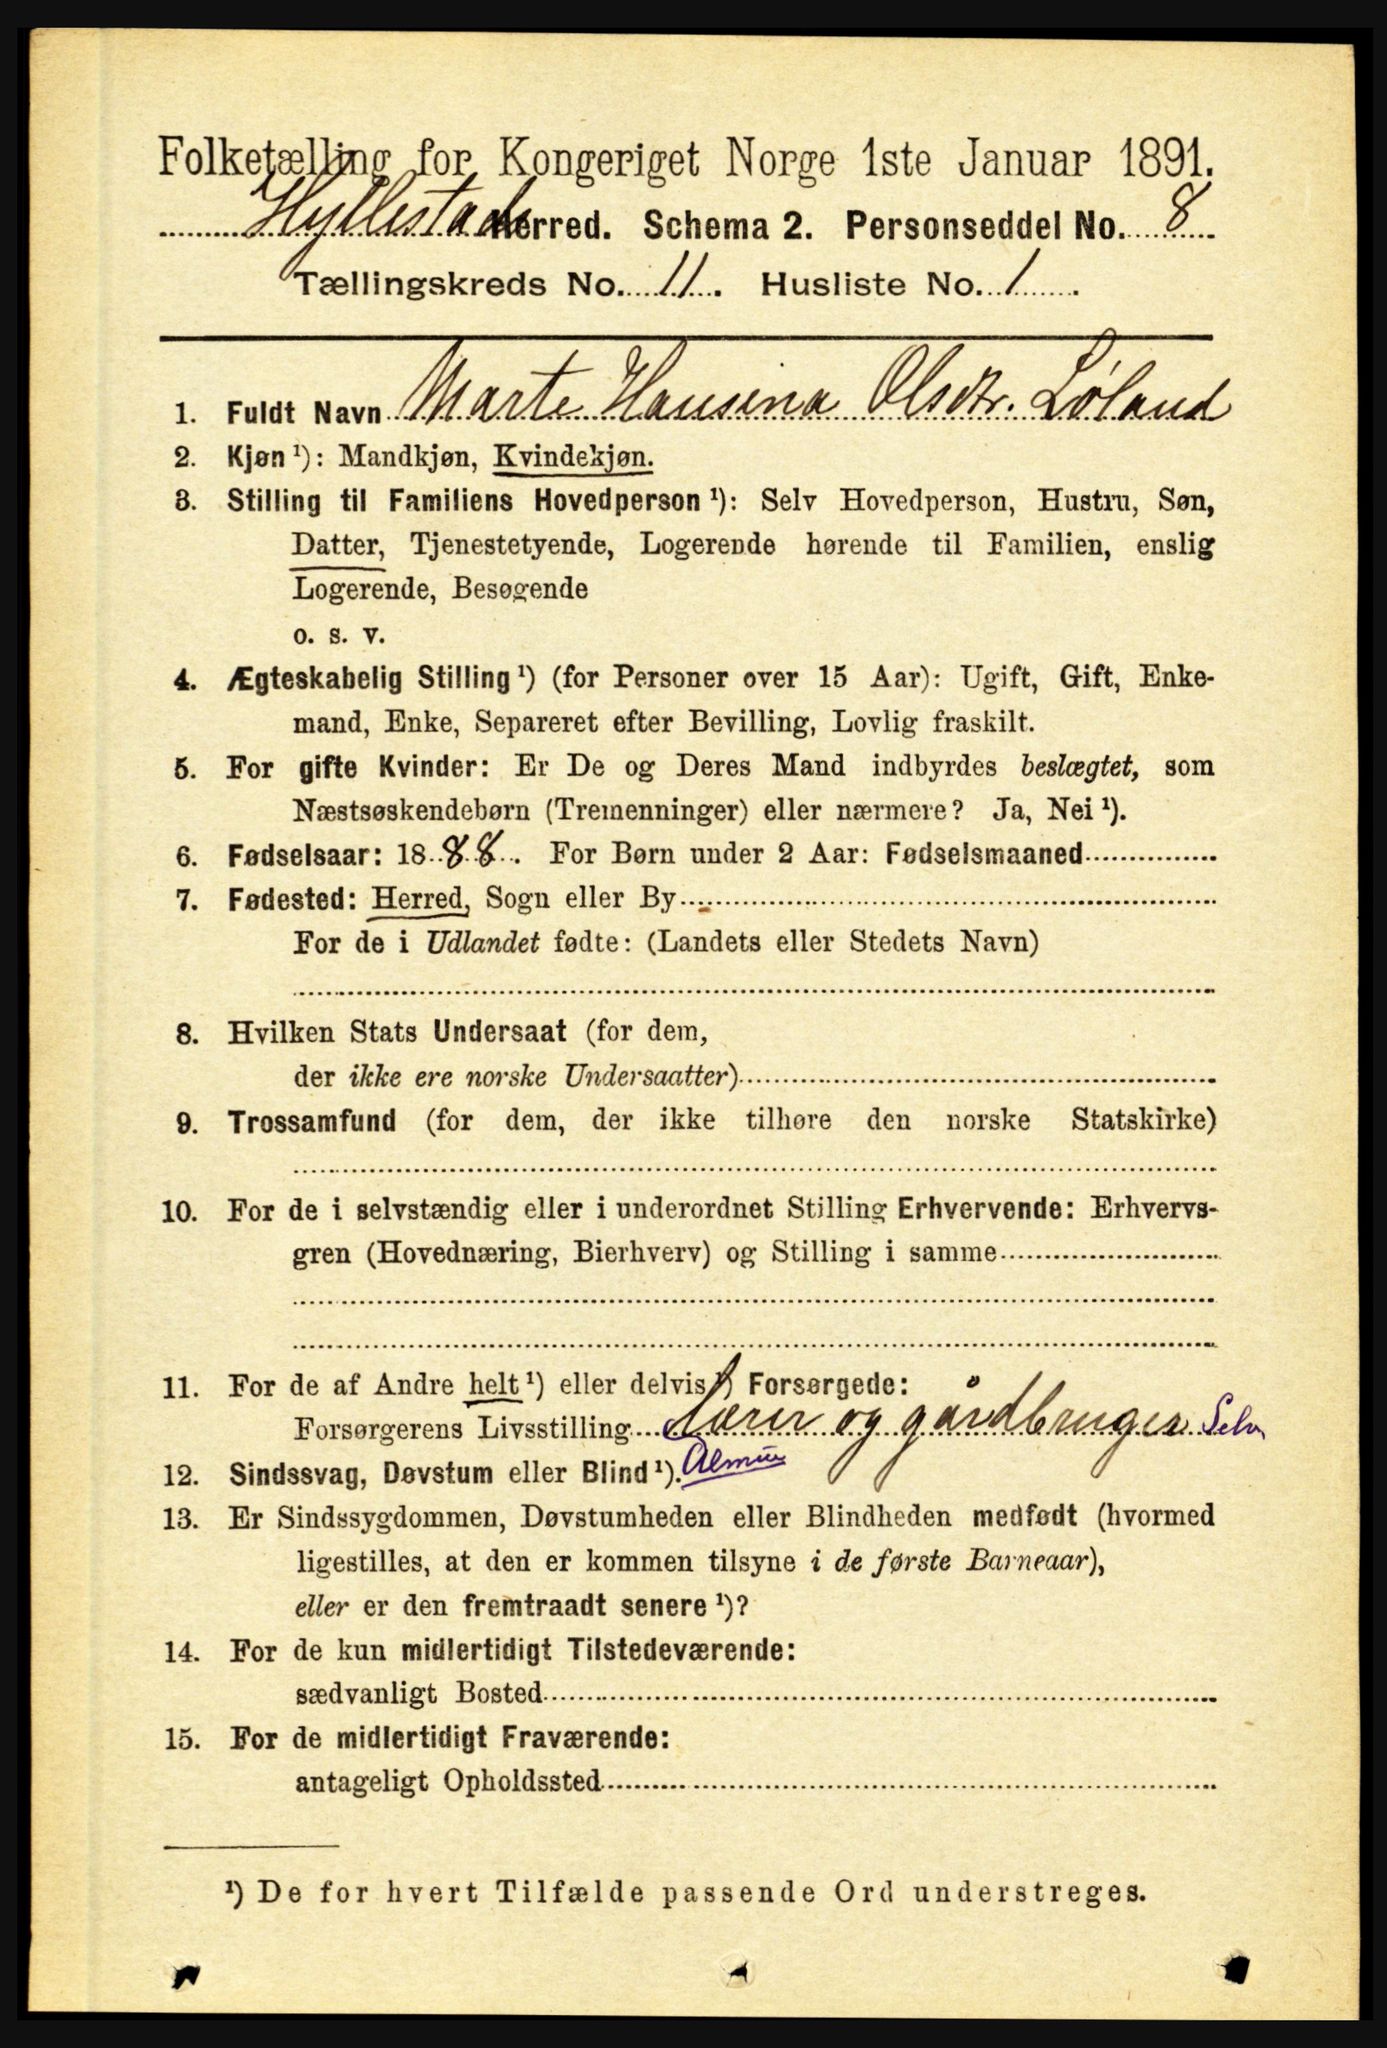 Folketælling for Kongeriget Norge 1ste Januar 1891.
Hyllestad Herred. Schema 2. Personseddel No. 8
Tællingskreds No. 11. Husliste No. 1.
1. Fuldt Navn Marte Hansina Olsdtr. Løland
2. Kjøn ¹): Mandkjøn, Kvindekjøn.
3. Stilling til Familiens Hovedperson ¹): Selv Hovedperson, Hustru, Søn,
Datter, Tjenestetyende, Logerende hørende til Familien, enslig
Logerende, Besøgende
o. s. v.
4. Ægteskabelig Stilling ¹) (for Personer over 15 Aar): Ugift, Gift, Enke-
mand, Enke, Separeret efter Bevilling, Lovlig fraskilt.
5. For gifte Kvinder: Er De og Deres Mand indbyrdes beslægtet, som
Næstsøskendebørn (Tremenninger) eller nærmere? Ja, Nei ¹).
6. Fødselsaar: 1888. For Børn under 2 Aar: Fødselsmaaned
7. Fødested: Herred, Sogn eller By
For de i Udlandet fødte: (Landets eller Stedets Navn)
8. Hvilken Stats Undersaat (for dem,
der ikke ere norske Undersaatter)
9. Trossamfund (for dem, der ikke tilhøre den norske Statskirke)
10. For de i selvstændig eller i underordnet Stilling Erhvervende: Erhvervs-
gren (Hovednæring, Bierhverv) og Stilling i samme
11. For de af Andre helt ¹) eller delvis ¹) Forsørgede:
Forsørgerens Livsstilling lærer og gårdbruger Selv
12. Sindssvag, Døvstum eller Blind ¹). Almue
13. Er Sindssygdommen, Døvstumheden eller Blindheden medfødt (hvormed
ligestilles, at den er kommen tilsyne i de første Barneaar),
eller er den fremtraadt senere ¹)?
14. For de kun midlertidigt Tilstedeværende:
sædvanligt Bosted
15. For de midlertidigt Fraværende:
antageligt Opholdssted
¹) De for hvert Tilfælde passende Ord understreges.